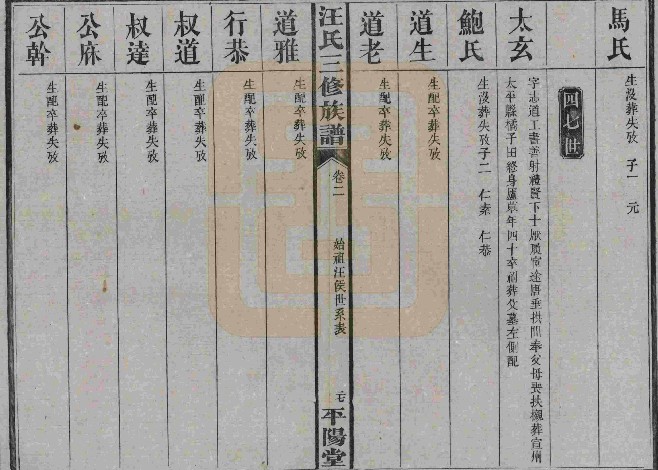 馬氏
生沒葬失攷 子一 元
四七世
太玄
字志道工書善射禮賢下士厭庾宦途唐垂拱間奉父母喪扶櫬葬宣州
太平縣橘子田終身廬墓年四十卒祔葬父墓左側配
鮑氏
生沒葬失攷子二 仁素 仁恭
道生
生配卒葬失攷
道老
生配卒葬失攷
汪氏三修族譜
卷二
始祖汪侯世系表
二七
平陽堂
道雅
生配卒葬失攷
行恭
生配卒葬失攷
叔道
生配卒葬失攷
叔達
生配卒葬失攷
公麻
生配卒葬失攷
公幹
生配卒葬失攷